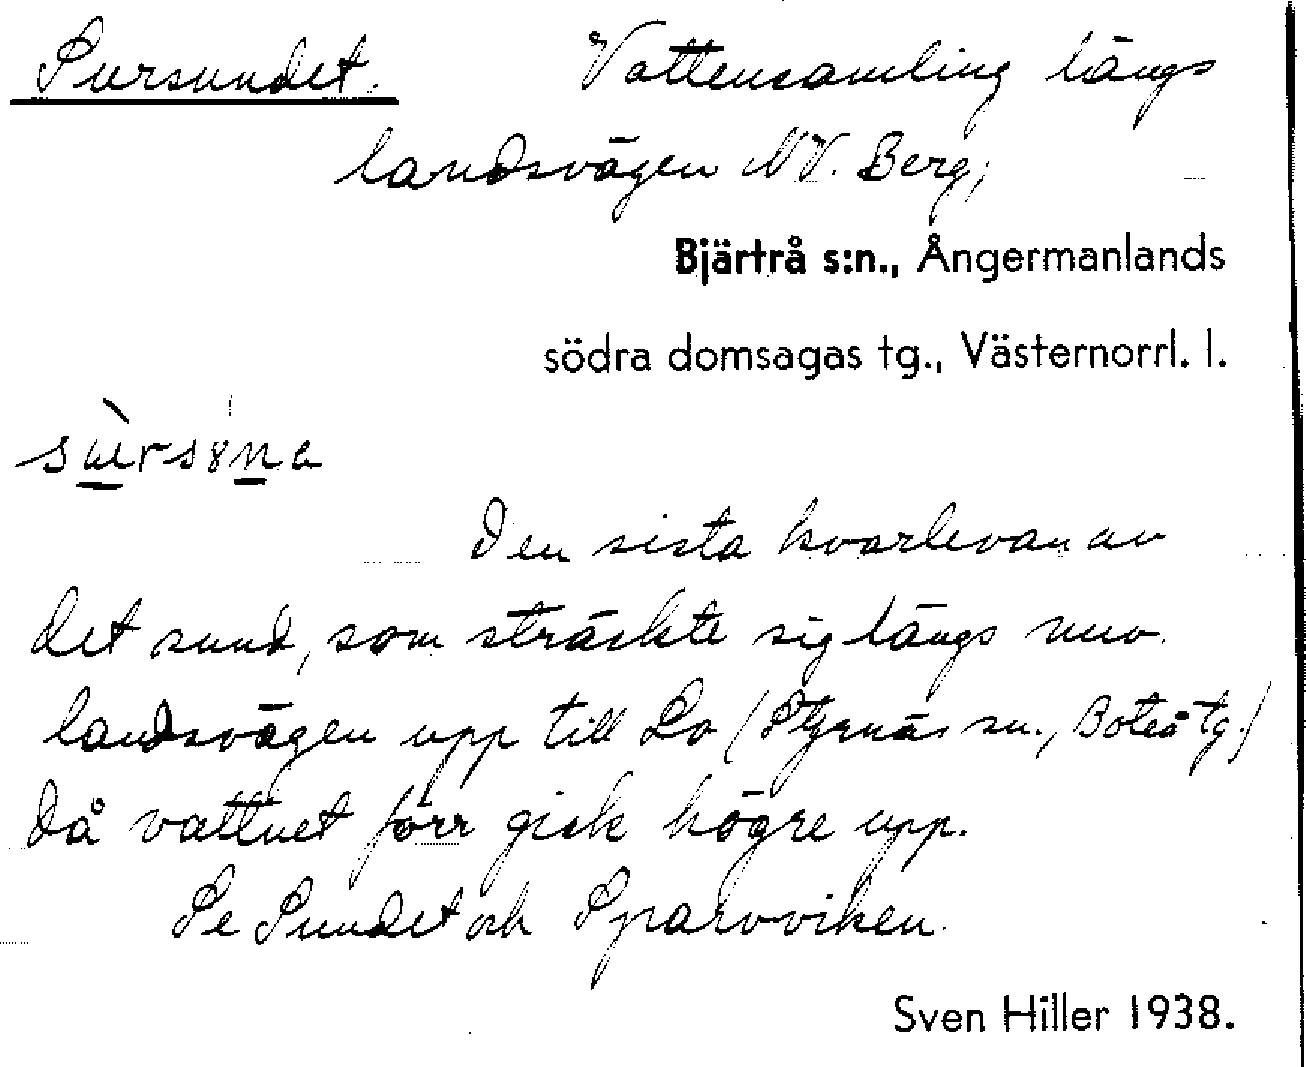 Sursundet. Vattensamling längs
landsvägen NV. Berg;
Bjärtrå s:n., Ångermanlands
södra domsagas tg., Västernorrl. l.
Den sista kvarlevan av
det sund, som sträckte sig längs nuv.
landsvägen upp till Lo (Styrnäs sn., Boteå tg.)
då vattnet förr gick högre upp.
Se Sundet och Sparvviken.
Sven Hiller 1938.